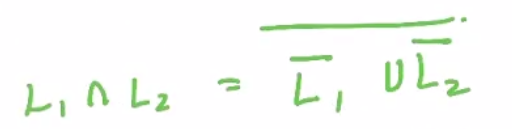 L₁ ∩ L₂ = \overline{\overline{L₁} ∪ \overline{L₂}}